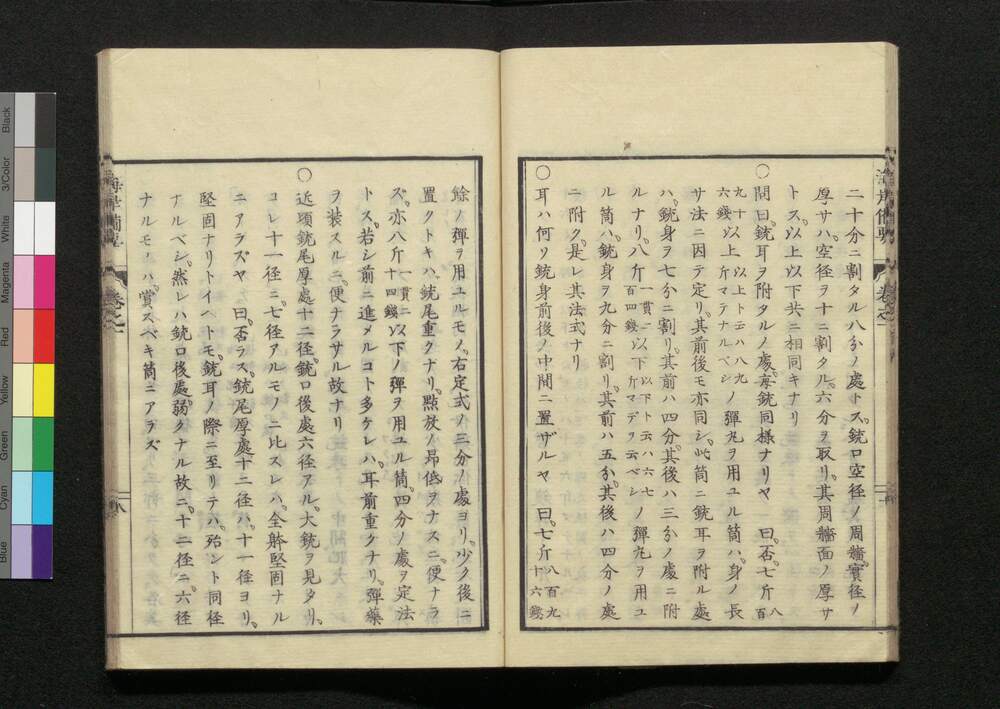 二十分ニ割タル八分ノ處トス。銃口空径ノ周牆。實径ノ
厚サハ。空径ヲ十ニ割タル。六分ヲ取リ。其周牆面ノ厚サ
トス。以上以下共ニ相同キナリ
○問曰。銃耳ヲ附タルノ處。毎銃同様ナリヤ 曰。否。七斤八百
九十六錢以上以上ト云ハ八九斤マテナルベシノ彈丸ヲ用ユル筒ハ。身ノ長
サ法ニ因テ定リ。其前後モ亦同シ。此筒ニ銃耳ヲ附ル處
ハ。銃身ヲ七分ニ割リ。其前ハ四分。其後ハ三分ノ處ニ附
ルナリ。八斤一貫二百四錢以下以下ト云ハ六七斤マデヲ云ベシノ彈丸ヲ用ユ
ル筒ハ。銃身ヲ九分ニ割リ。其前ハ五分。其後ハ四分ノ處
ニ附ク。是レ其法式ナリ
○耳ハ何ソ銃身前後ノ中間ニ置ザルヤ 曰。七斤八百九十六錢
餘ノ彈ヲ用ユルモノ。右定式ノ三分ノ處ヨリ。少ク後ニ
置クトキハ。銃尾重クナリ。點放ノ昂低ヲナスニ。便ナラ
ズ。亦八斤一貫二十四錢以下ノ彈ヲ用ユル筒。四分ノ處ヲ定法
トス。若シ前ニ進メルコト多ケレハ。耳前重クナリ。彈藥
ヲ装スルニ。便ナラサル故ナリ
○近頃銃尾厚處十二径。銃口後處六径アル。大銃ヲ見タリ。
コレ十一径ニ。七径アルモノニ比スレハ。全躰堅固ナル
ニアラズヤ 曰。否ラス。銃尾厚處十二径ハ。十一径ヨリ。
堅固ナリトイヘトモ。銃耳ノ際ニ至リテハ。殆ント同径
ナルベシ。然レハ銃口後處。弱クナル故ニ。十二径ニ。六径
ナルモノハ。賞スベキ筒ニアラズ
海岸備要
卷之一
八
Black
3/Color
White
Magenta
Red
Yellow
Green
Cyan
Blue